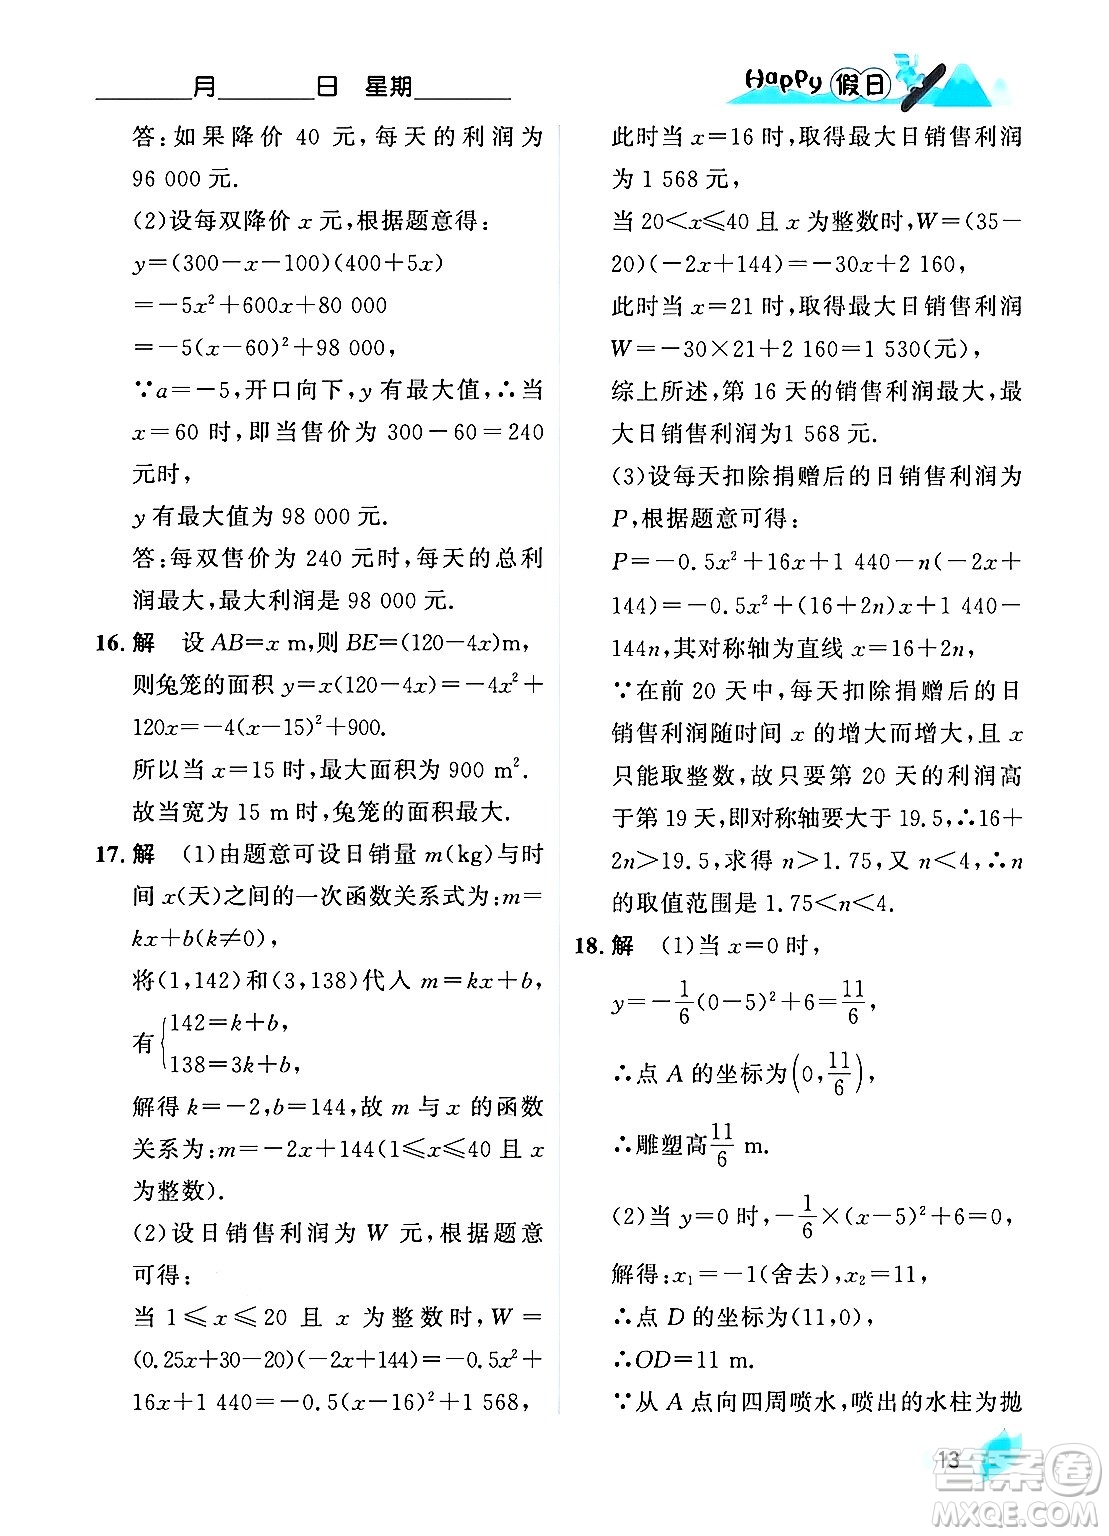 ____月____日 星期____
Happy 假日
答:如果降价 40 元,每天的利润为
96 000 元.
(2)设每双降价 x 元,根据题意得:
y=(300-x-100)(400+5x)
=-5x²+600x+80 000
=-5(x-60)²+98 000,
∵a=-5,开口向下,y 有最大值,∴当
x=60 时,即当售价为 300-60=240
元时,
y 有最大值为 98 000 元.
答:每双售价为 240 元时,每天的总利
润最大,最大利润是 98 000 元.
16. 解 设 AB=x m,则 BE=(120-4x)m,
则兔笼的面积 y=x(120-4x)=-4x²+
120x=-4(x-15)²+900.
所以当 x=15 时,最大面积为 900 m².
故当宽为 15 m 时,兔笼的面积最大.
17. 解 (1)由题意可设日销量 m(kg)与时
间 x(天)之间的一次函数关系式为:m=
kx+b(k≠0),
将(1,142)和(3,138)代人 m=kx+b,
有{142=k+b,
138=3k+b,
解得 k=-2,b=144,故 m 与 x 的函数
关系为:m=-2x+144(1≤x≤40 且 x
为整数).
(2)设日销售利润为 W 元,根据题意
可得:
当 1≤x≤20 且 x 为整数时,W=
(0.25x+30-20)(-2x+144)=-0.5x²+
16x+1 440=-0.5(x-16)²+1 568,
此时当 x=16 时,取得最大日销售利润
为 1 568 元,
当 20<x≤40 且 x 为整数时,W=(35-
20)(-2x+144)=-30x+2 160,
此时当 x=21 时,取得最大日销售利润
W=-30×21+2 160=1 530(元),
综上所述,第 16 天的销售利润最大,最
大日销售利润为1 568 元.
(3)设每天扣除捐赠后的日销售利润为
P,根据题意可得:
P=-0.5x²+16x+1 440-n(-2x+
144)=-0.5x²+(16+2n)x+1 440-
144n,其对称轴为直线 x=16+2n,
∵在前 20 天中,每天扣除捐赠后的日
销售利润随时间 x 的增大而增大,且 x
只能取整数,故只要第 20 天的利润高
于第 19 天,即对称轴要大于 19.5,∴16+
2n>19.5,求得 n>1.75,又 n<4,∴n
的取值范围是 1.75<n<4.
18. 解 (1)当 x=0 时,
y=-1/6(0-5)²+6=11/6,
∴点 A 的坐标为(0,11/6),
∴雕塑高11/6 m.
(2)当 y=0 时,-1/6×(x-5)²+6=0,
解得:x₁=-1(舍去),x₂=11,
∴点 D 的坐标为(11,0),
∴OD=11 m.
∵从 A 点向四周喷水,喷出的水柱为抛
13
答案卷
MXQE.COM